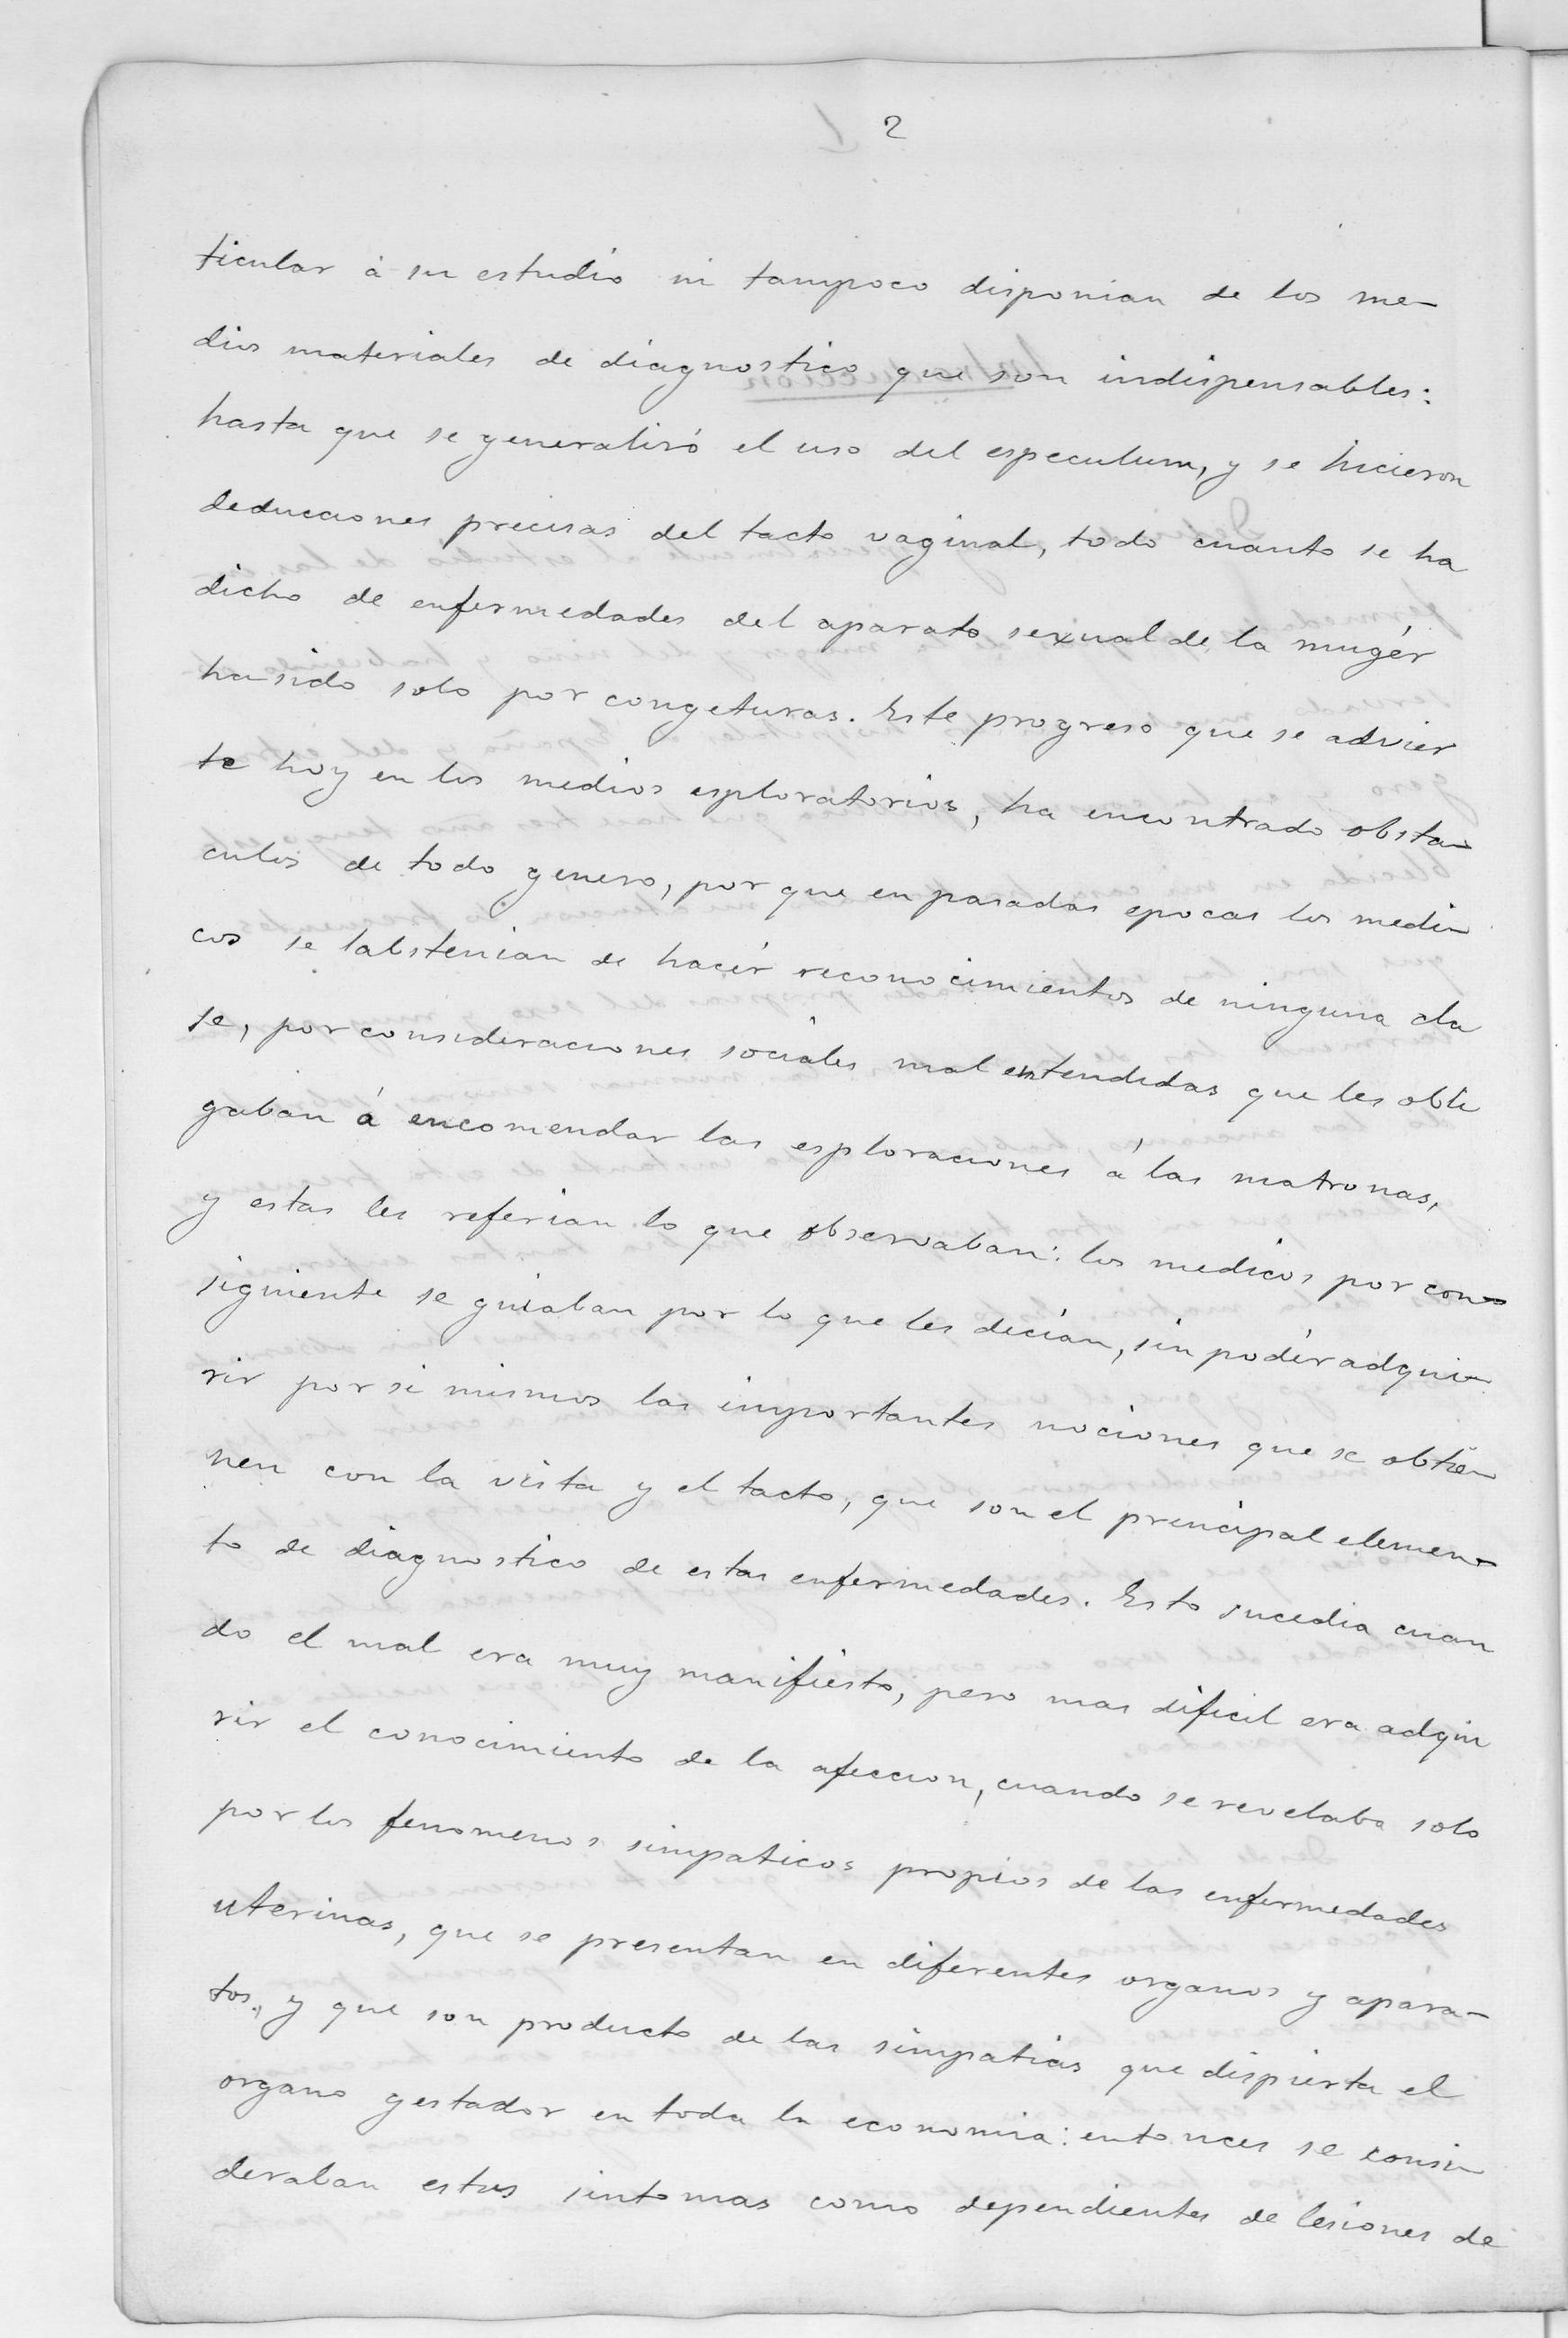 2
ticular à su estudio ni tampoco disponian de los me-
dios materiales de diagnostico que son indispensables:
hasta que se generalizó el uso del especulum, y se hicieron
deducciones precisas del tacto vaginal, todo cuanto se ha
dicho de enfermedades del aparato sexual de la mugér
ha sido solo por congeturas. Este progreso que se advier
te hoy en los medios esploratorios, ha encontrado obsta-
culos de todo genero, por que en pasadas epocas los medi-
cos se abstenian de hacér reconocimientos de ninguna cla
se, por consideraciones sociales mal entendidas que les obli
gaban á encomendar las esploraciones á las matronas,
y estas les referian lo que observaban: los medicos por con-
siguiente se guiaban por lo que les decian, sin podér adqui-
rir por si mismos las importantes nociones que se obtie-
nen con la vista y el tacto, que son el principal elemen-
to de diagnostico de estas enfermedades. Esto sucedia cuan
do el mal era muy manifiesto, pero mas dificil era adqui
rir el conocimiento de la afeccion, cuando se revelaba solo
por los fenomenos simpaticos propios de las enfermedades
uterinas, que se presentan en diferentes organos y apara-
tos, y que son producto de las simpatias que dispierta el
organo gestador en toda la economia: entonces se consi-
deraban estos sintomas como dependientes de lesiones de